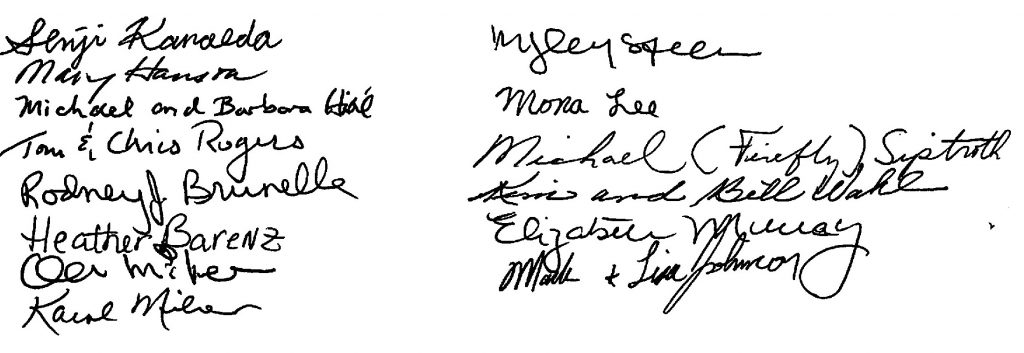 Senji Kanaeda
Mary Hanson
Michael and Barbara
Tom & Chris Rogers
Rodney J Brunelle
Heather Barenz
Karol Milner
Mona Lee
Michael (Firefly) Siptroth
Kim and Bill Wahl
Elizabeth Murray
Mark & Lisa Johnson